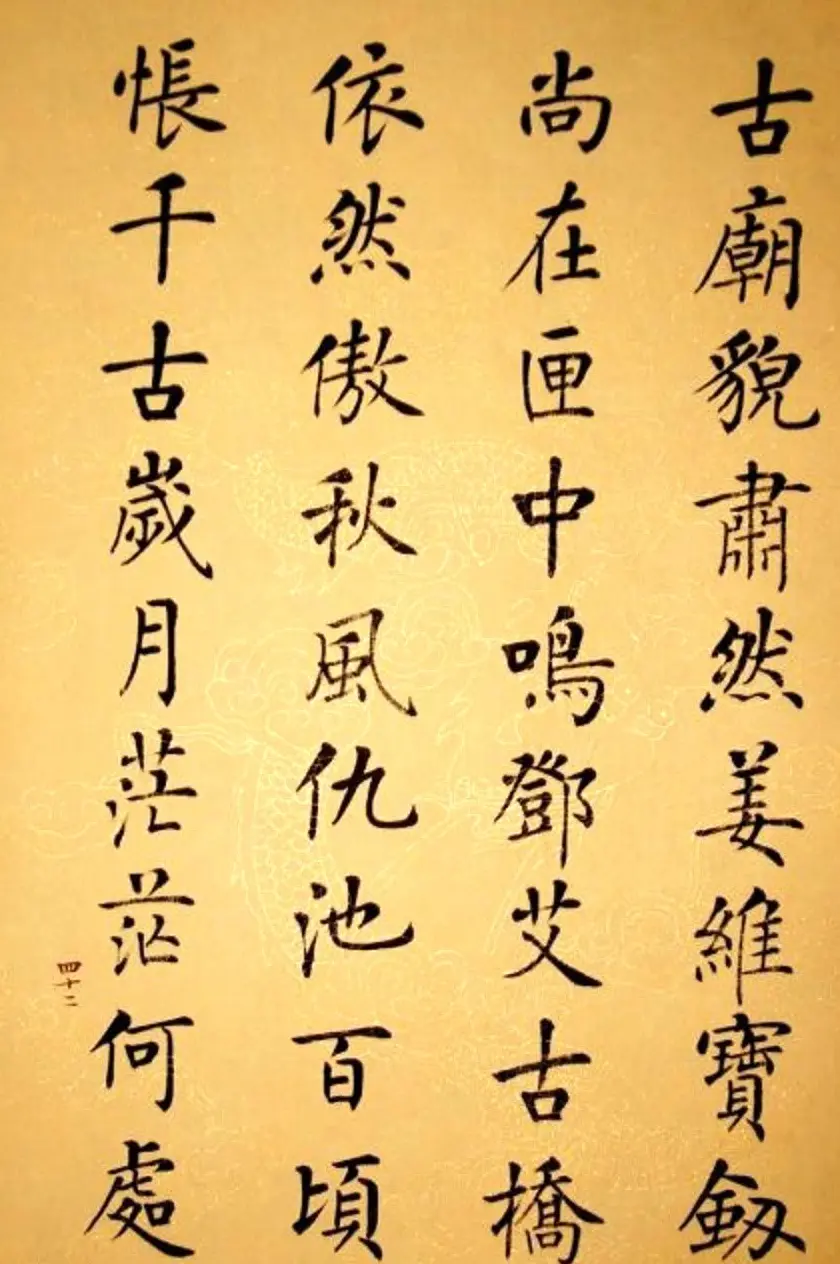 古廟貌肅然姜維寶釼
尚在匣中鳴鄧艾古橋
依然傲秋風仇池百頃
悵千古歲月茫茫何處
四十二